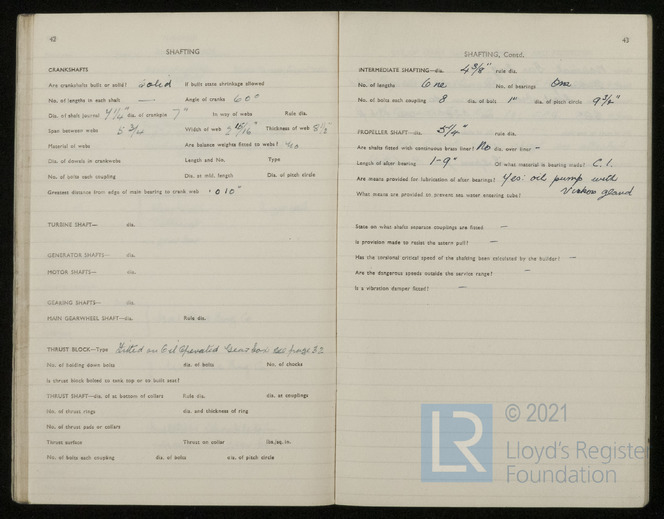 42
SHAFTING
CRANKSHAFTS
Are crankshafts built or solid? Solid If built state shrinkage allowed
No. of lengths in each shaft — Angle of cranks 60°
Dia. of shaft journal 4½" dia. of crankpin 7" In way of webs Rule dia.
Span between webs 5 3/4 Width of web 2 15/16" Thickness of web 8½"
Material of webs Are balance weights fitted to webs? No
Dia. of dowels in crankwebs Length and No. Type
No. of bolts each coupling Dia. at mid. length Dia. of pitch circle
Greatest distance from edge of main bearing to crank web ·010"
TURBINE SHAFT— dia.
GENERATOR SHAFTS— dia.
MOTOR SHAFTS— dia.
GEARING SHAFTS— dia.
MAIN GEARWHEEL SHAFT—dia. Rule dia.
THRUST BLOCK—Type Fitted on Oil Operated Gear box see page 32
No. of holding down bolts dia. of bolts No. of chocks
Is thrust block bolted to tank top or to built seat?
THRUST SHAFT—dia. of at bottom of collars Rule dia. dia. at couplings
No. of thrust rings dia. and thickness of ring
No. of thrust pads or collars
Thrust surface Thrust on collar lbs./sq. in.
No. of bolts each coupling dia. of bolts dia. of pitch circle
43
SHAFTING, Contd.
INTERMEDIATE SHAFTING—dia. 4 3/8" rule dia.
No. of lengths One No. of bearings One
No. of bolts each coupling 8 dia. of bolt 1" dia. of pitch circle 9 3/4"
PROPELLER SHAFT—dia. 5 1/4" rule dia.
Are shafts fitted with continuous brass liner? No dia. over liner —
Length of after bearing 1-9" Of what material is bearing made? C.I.
Are means provided for lubrication of after bearings? Yes: oil pump with
What means are provided to prevent sea water entering tube? Vickers gland
State on what shafts separate couplings are fitted —
Is provision made to resist the astern pull? —
Has the torsional critical speed of the shafting been calculated by the builder? —
Are the dangerous speeds outside the service range? —
Is a vibration damper fitted? —
LR
© 2021
Lloyd's Register
Foundation